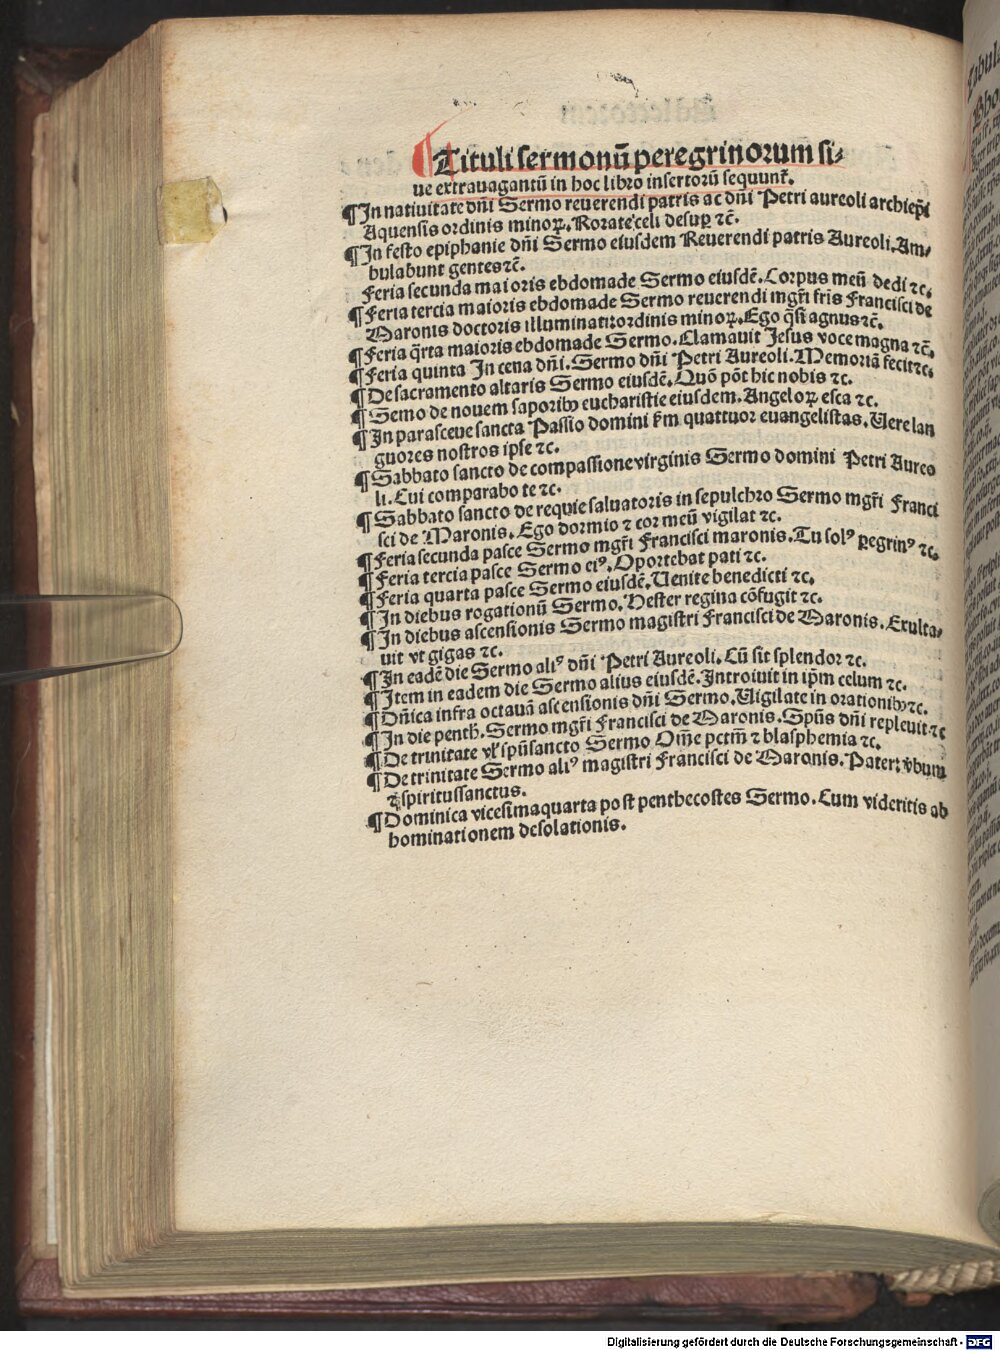 ¶ Tituli sermonū peregrinorum si⸗
ue extrauagantū in hoc libro insertorū sequunt᷑.
¶ In natiuitate dn̄i Sermo reuerendi patris ac dn̄i Petri aureoli archiep̄i
Aquensis ordinis minoꝝ. Rorate celi desuꝑ ⁊c̄.
¶ In festo epiphanie dn̄i Sermo eiusdem Reuerendi patris Aureoli. Am⸗
bulabunt gentes ⁊c̄.
Feria secunda maioris ebdomade Sermo eiusdē. Corpus meū dedi ⁊c.
¶ Feria tercia maioris ebdomade Sermo reuerendi mgr̄i fr̄is Francisci de
Maronis doctoris illuminati ordinis minoꝝ. Ego q̄si agnus ⁊c̄.
¶ Feria q̄rta maioris ebdomade Sermo. Clamauit Jesus voce magna ⁊c̄.
¶ Feria quinta In cena dn̄i. Sermo dn̄i Petri Aureoli. Memoriā fecit ⁊c.
¶ De sacramento altaris Sermo eiusdē. Quō pōt hic nobis ⁊c.
¶ Semo de nouem saporibꝰ eucharistie eiusdem. Angeloꝝ esca ⁊c.
¶ In parasceue sancta Passio domini ẜm quattuor euangelistas. Uere lan
guores nostros ipse ⁊c.
¶ Sabbato sancto de compassione virginis Sermo domini Petri Aureo
li. Cui comparabo te ⁊c.
¶ Sabbato sancto de requie saluatoris in sepulchro Sermo mgr̄i Franci
sci de Maronis. Ego dormio ⁊ cor meū vigilat ⁊c.
¶ Feria secunda pasce Sermo mgr̄i Francisci maronis. Tu solꝰ ꝑegrinꝰ ⁊c.
¶ Feria tercia pasce Sermo eiꝰ. Oportebat pati ⁊c.
¶ Feria quarta pasce Sermo eiusdē. Uenite benedicti ⁊c.
¶ In diebus rogationū Sermo. Hester regina cōfugit ⁊c.
¶ In diebus ascensionis Sermo magistri Francisci de Maronis. Exulta⸗
uit vt gigas ⁊c.
¶ In eadē die Sermo aliꝰ dn̄i Petri Aureoli. Cū sit splendor ⁊c.
¶ Item in eadem die Sermo alius eiusdē. Introiuit in ip̄m celum ⁊c.
¶ Dn̄ica infra octauā ascensionis dn̄i Sermo. Uigilate in orationibꝰ ⁊c.
¶ In die penth̄. Sermo mgr̄i Francisci de Maronis. Spūs dn̄i repleuit ⁊c
¶ De trinitate vl̓ spūsancto Sermo Om̄e pctm̄ ⁊ blasphemia ⁊c.
¶ De trinitate Sermo aliꝰ magistri Francisci de Maronis. Pater: v̄bum
⁊ spiritussanctus.
¶ Dominica vicesimaquarta post penthecostes Sermo. Cum videritis ab
hominationem desolationis.
Digitalisierung gefördert durch die Deutsche Forschungsgemeinschaft - DFG